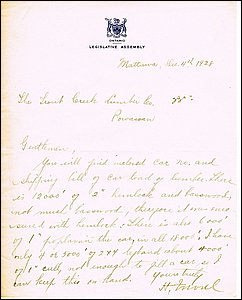 ONTARIO
LEGISLATIVE ASSEMBLY
Mattawa, Dec. 4th 1928
The Trout Creek Lumber Co.
Powassan
Gentlemen,
You will find inclosed car no. and
shipping bill of car load of lumber. There
is 12000' of 2" hemlock and basswood,
not much basswood, therefore
mixed with hemlock, there is also 6000'
of 1" poplar in the car, in all 18000'. I have
only 4 or 5000' of 2x4 about 4000'
of 1" cull, not enough to fill a car so I
can keep this on hand. Yours truly
H. Morel